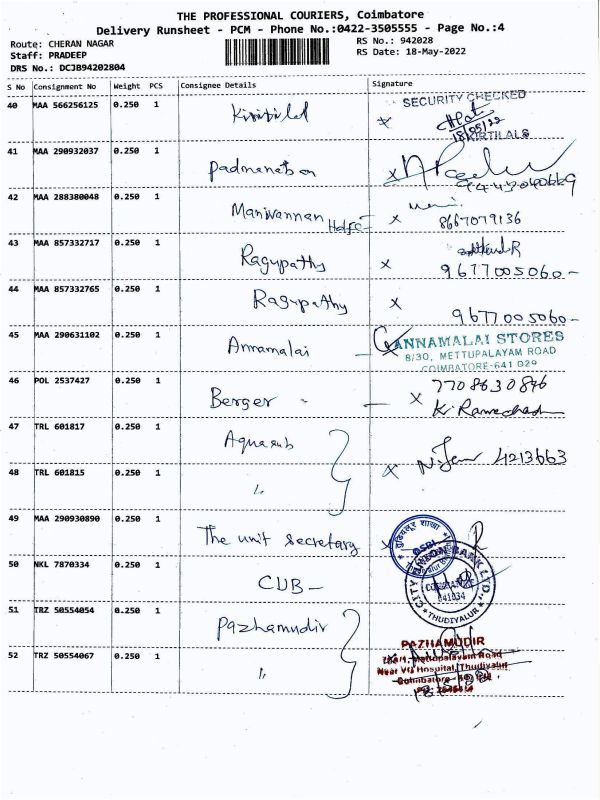 THE PROFESSIONAL COURIERS, Coimbatore
Delivery Runsheet - PCM - Phone No.:0422-3505555 - Page No.:4
Route: CHERAN NAGAR RS No.: 942028
Staff: PRADEEP RS Date: 18-May-2022
DRS No.: DCJB94202804
S No Consignment No Weight PCS Consignee Details Signature
40 MAA 566256125 0.250 1 SECURITY CHECKED
18/05/22
KIRTILALS
41 MAA 290932037 0.250 1 Padmanaban
42 MAA 288380048 0.250 1 Manivannan Hdfc x 8667079136
43 MAA 857332717 0.250 1 Ragupathy x 9677005060-
44 MAA 857332765 0.250 1 Ragupathy x 9677005060-
45 MAA 290631102 0.250 1 Annamalai - ANNAMALAI STORES
8/30, METTUPALAYAM ROAD
COIMBATORE-641 029
46 POL 2537427 0.250 1 Berger - x 7708630846
47 TRL 601817 0.250 1 Aquasub x 4213663
48 TRL 601815 0.250 1 "
49 MAA 290930890 0.250 1 The unit secretary x
50 NKL 7870334 0.250 1 CUB - CITY UNION BANK LTD.
COIMBATORE
641034
THUDIYALUR
51 TRZ 50554054 0.250 1 Pazhamudir
PAZHAMUDIR
52 TRZ 50554067 0.250 1 " Mettupalayam Road
Near VG Hospital, Thudiyalur
Coimbatore